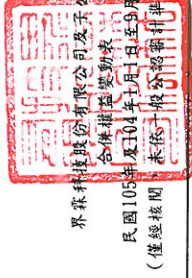 界霖科技股份有限公司及子公
合併權益變動表
民國105年及104年1月1日至9月
(僅經核閱,未依一般公認審計準